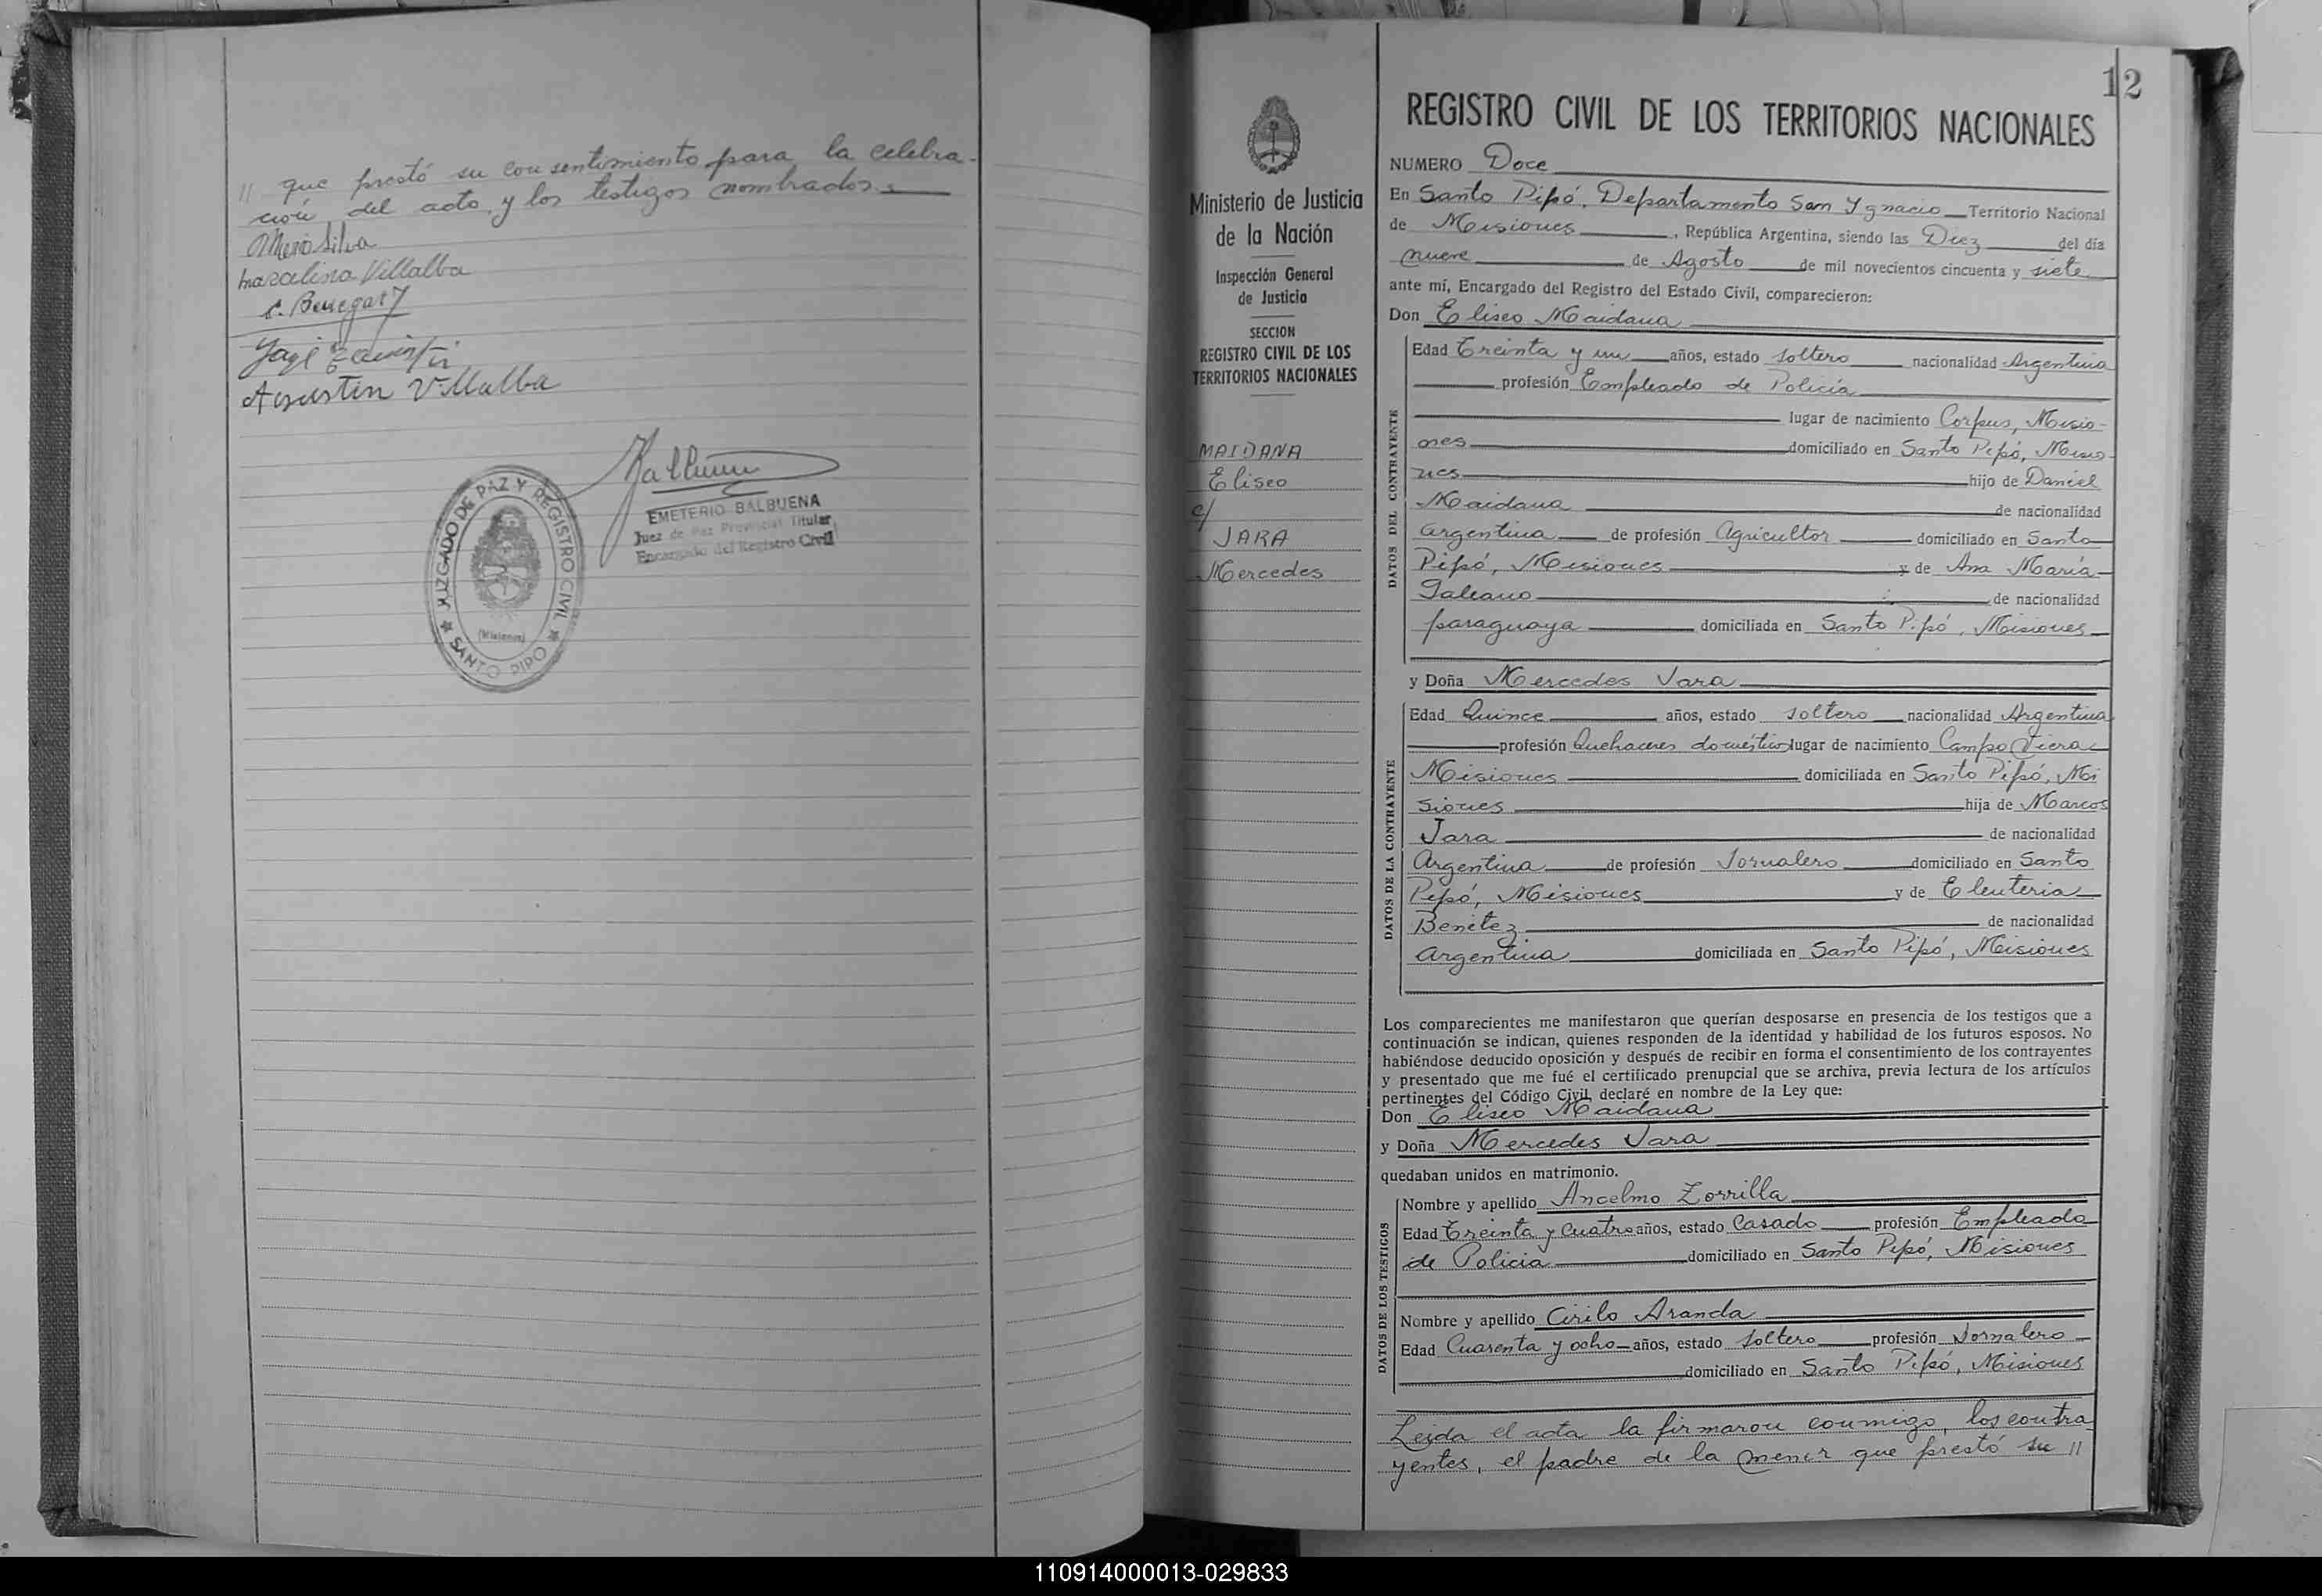 // que prestó su consentimiento para la celebra-
ción del acto y los testigos nombrados.
Silva
Marcelina Villalba
Agustin Villalba
JUZGADO DE PAZ Y REGISTRO CIVIL
(Misiones)
★ SANTO PIPO ★
EMETERIO BALBUENA
Juez de Paz Provincial Titular
Encargado del Registro Civil
12
Ministerio de Justicia
de la Nación
Inspección General
de Justicia
SECCION
REGISTRO CIVIL DE LOS
TERRITORIOS NACIONALES
MAIDANA
Eliseo
c/
JARA
Mercedes
REGISTRO CIVIL DE LOS TERRITORIOS NACIONALES
NUMERO Doce
En Santo Pipó, Departamento San Ygnacio Territorio Nacional
de Misiones, República Argentina, siendo las Diez del día
nueve de Agosto de mil novecientos cincuenta y siete
ante mí, Encargado del Registro del Estado Civil, comparecieron:
Don Eliseo Maidana
DATOS DEL CONTRAYENTE
Edad Treinta y un años, estado soltero nacionalidad Argentina
profesión Empleado de Policía
lugar de nacimiento Corpus, Misio-
nes domiciliado en Santo Pipó, Misio
nes hijo de Daniel
Maidana de nacionalidad
argentina de profesión Agricultor domiciliado en Santo
Pipó, Misiones y de Ana María
Galeano de nacionalidad
paraguaya domiciliada en Santo Pipó, Misiones
y Doña Mercedes Jara
DATOS DE LA CONTRAYENTE
Edad Quince años, estado soltero nacionalidad Argentina
profesión Quehaceres domésticos lugar de nacimiento Campo Viera
Misiones domiciliada en Santo Pipó, Mi
siones hija de Marcos
Jara de nacionalidad
Argentina de profesión Jornalero domiciliado en Santo
Pipó, Misiones y de Eleuteria
Benitez de nacionalidad
argentina domiciliada en Santo Pipó, Misiones
Los comparecientes me manifestaron que querían desposarse en presencia de los testigos que a
continuación se indican, quienes responden de la identidad y habilidad de los futuros esposos. No
habiéndose deducido oposición y después de recibir en forma el consentimiento de los contrayentes
y presentado que me fué el certificado prenupcial que se archiva, previa lectura de los artículos
pertinentes del Código Civil, declaré en nombre de la Ley que:
Don Eliseo Maidana
y Doña Mercedes Jara
quedaban unidos en matrimonio.
DATOS DE LOS TESTIGOS
Nombre y apellido Ancelmo Zorrilla
Edad Treinta y cuatro años, estado Casado profesión Empleado
de Policia domiciliado en Santo Pipó, Misiones
Nombre y apellido Cirilo Aranda
Edad Cuarenta y ocho años, estado soltero profesión Jornalero
domiciliado en Santo Pipó, Misiones
Leida el acta la firmaron conmigo, los contra
yentes, el padre de la menor que prestó su //
110914000013-029833